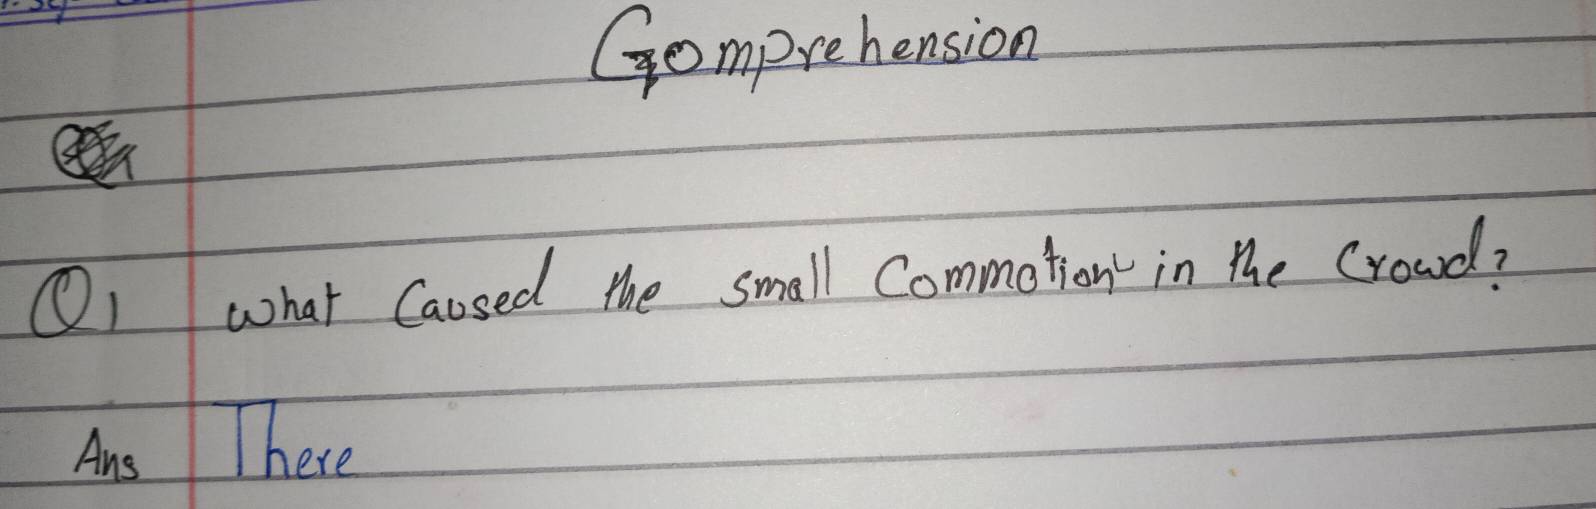 Comprehension
Q1 What Caused the small Commotion in the Crowd?
Ans There